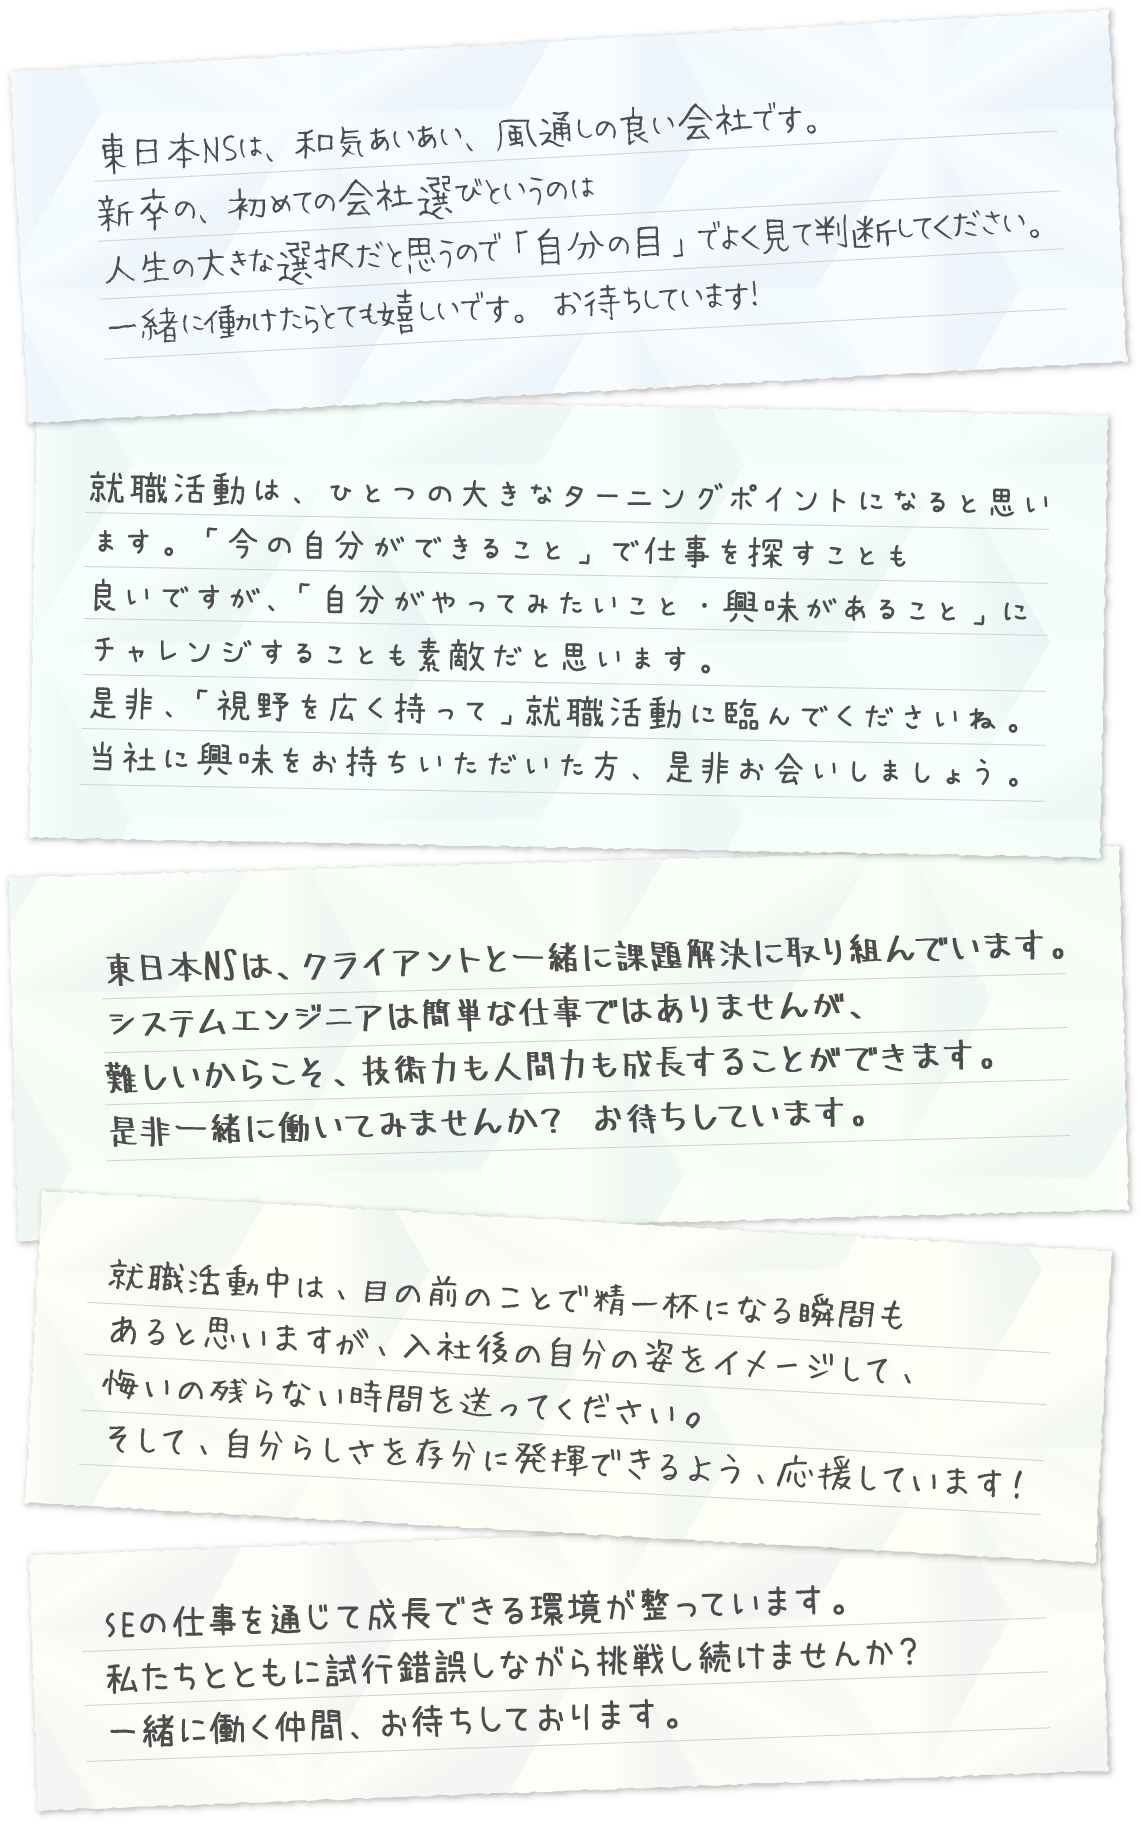 東日本NSは、和気あいあい、風通しの良い会社です。
新卒の、初めての会社選びというのは
人生の大きな選択だと思うので「自分の目」でよく見て判断してください。
一緒に働けたらとても嬉しいです。 お待ちしています!
就職活動は、ひとつの大きなターニングポイントになると思い
ます。「今の自分ができること」で仕事を探すことも
良いですが、「自分がやってみたいこと・興味があること」に
チャレンジすることも素敵だと思います。
是非、「視野を広く持って」就職活動に臨んでくださいね。
当社に興味をお持ちいただいた方、是非お会いしましょう。
東日本NSは、クライアントと一緒に課題解決に取り組んでいます。
システムエンジニアは簡単な仕事ではありませんが、
難しいからこそ、技術力も人間力も成長することができます。
是非一緒に働いてみませんか? お待ちしています。
就職活動中は、目の前のことで精一杯になる瞬間も
あると思いますが、入社後の自分の姿をイメージして、
悔いの残らない時間を送ってください。
そして、自分らしさを存分に発揮できるよう、応援しています!
SEの仕事を通じて成長できる環境が整っています。
私たちとともに試行錯誤しながら挑戦し続けませんか?
一緒に働く仲間、お待ちしております。